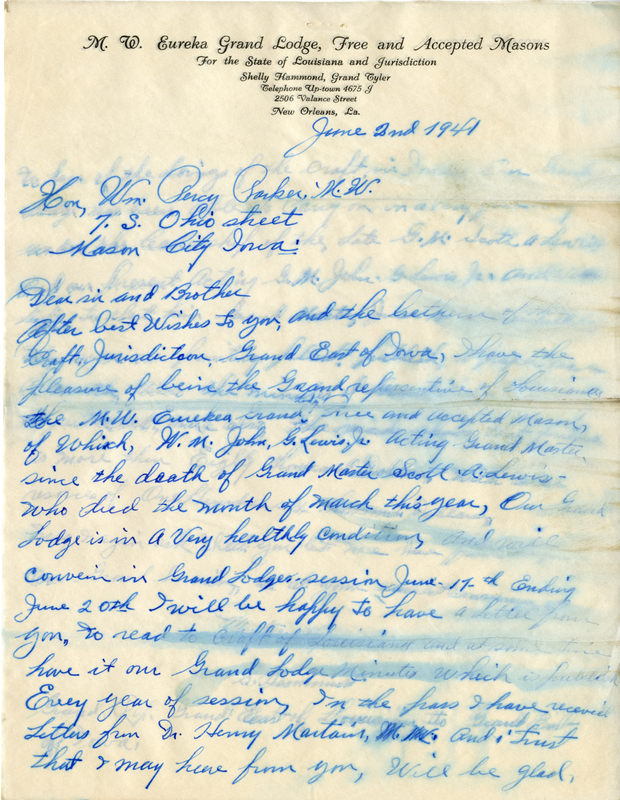 M. W. Eureka Grand Lodge, Free and Accepted Masons
For the State of Louisiana and Jurisdiction
Shelly Hammond, Grand Tyler
Telephone Up-town 4675 J
2506 Valance Street
New Orleans, La.
June 2nd 1941
Hon, Wm. Percy Parker, M.W.
7. S. Ohio street
Mason City Iowa:
Dear sir and Brother
After best Wishes to you, and the brethern of the
Craft, Jurisdictson Grand East of Iowa, I have the
pleasure of being the Grand representive of Louisiana
the M.W. Eureka Grand, Free and accepted Mason,
of Which, W.M. John, G. Lewis, Jr. Acting-Grand Master
since the death of Grand Master Scott A. Lewis-
Who died the month of March this year, Our Grand
Lodge is in A Very healthly condition, and will
convein in Grand Lodges-session June-17-th Ending
June 20th I will be happy to have a letter from
you, to read to Craft of Louisiana and at some time
have it our Grand Lodge Minutes Which is
Evrey year of session, In the pass I have receive
Letters frun Dr. Henry M.W. And i Trust
that I may hear from you, Will be glad,